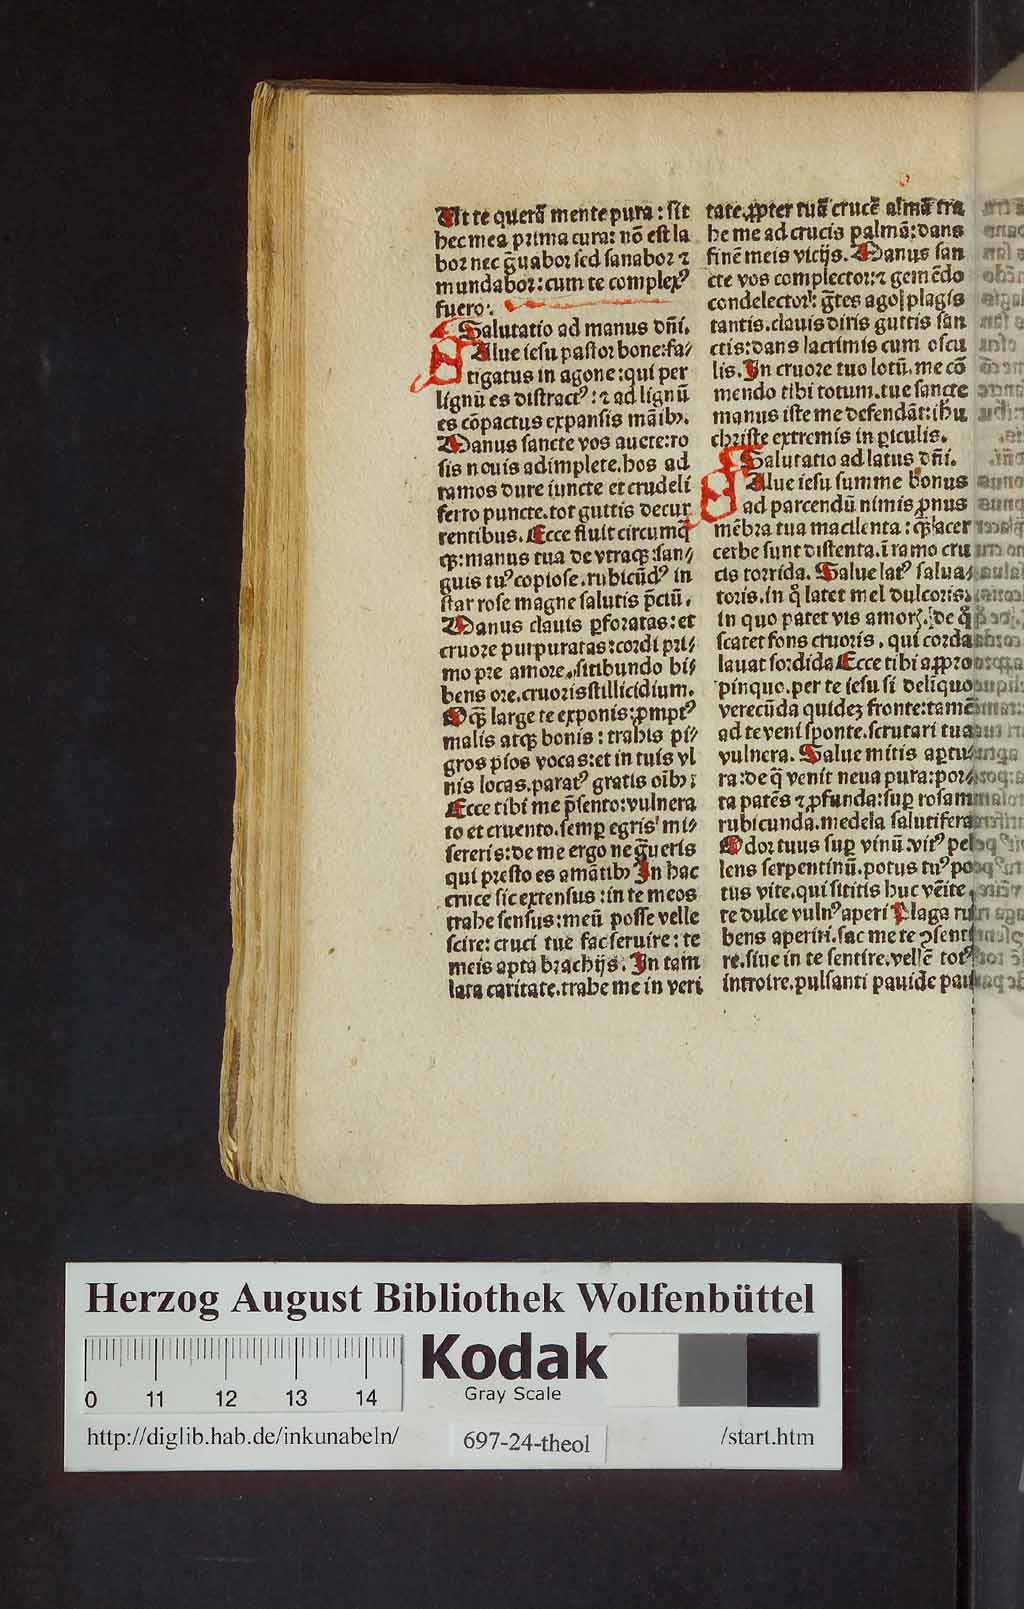 Ut te querā mente pura: sit
hec mea prima cura: nō est la
bor nec g̃uabor sed sanabor ⁊
mundabor: cum te complexꝰ
fuero:.
Salutatio ad manus dñi.
SAlue iesu pastor bone: fa⸗
tigatus in agone: qui per
lignū es distractꝰ: ⁊ ad lignū
es cōpactus expansis māibꝫ.
Manus sancte vos auete: ro
sis nouis adimplete. hos ad
ramos dure iuncte et crudeli
ferro puncte. tot guttis decur
rentibus. Ecce fluit circumq̄
qꝫ: manus tua de vtraqꝫ: san⸗
guis tuꝰ copiose. rubicūdꝰ in
star rose magne salutis p̄ciū.
Manus clauis ꝑforatas: et
cruore purpuratas: cordi pri⸗
mo pre amore. sitibundo bi⸗
bens ore. cruoris stillicidium.
O qꝫ large te exponis: ꝓmptꝰ
malis atqꝫ bonis: trahis pi⸗
gros pios vocas: et in tuis vl
nis locas. paratꝰ gratis oībꝫ:
Ecce tibi me p̄sento: vulnera
to et cruento. semꝑ egris mi⸗
sereris: de me ergo ne g̃ueris
qui presto es amātibꝫ In hac
cruce sic extensus: in te meos
trahe sensus: meū posse velle
scire: cruci tue fac seruire: te
meis apta brachijs. In tam
lata caritate. trahe me in veri
tate. ꝓpter tuā crucē almā tra
he me ad crucis palmā: dans
finē meis vicijs. Manus san
cte vos complector: ⁊ gemēdo
condelector: g̃tes ago plagis
tantis. clauis diris guttis san
ctis: dans lacrimis cum oscu
lis. In cruore tuo lotū. me cō
mendo tibi totum. tue sancte
manus iste me defendāt: ihū
christe extremis in ꝑiculis.
Salutatio ad latus dñi.
SAlue iesu summe bonus
ad parcendū nimis ꝓnus
mēbra tua macilenta: q̄ꝫ acer
cerbe sunt distenta. ī ramo cru
cis torrida. Salue latꝰ salua⸗
toris. in q̊ latet mel dulcoris.
in quo patet vis amorꝫ. de q̊
scatet fons cruoris, qui corda
lauat sordida Ecce tibi aꝓpro
pinquo. per te iesu si deliquo
verecūda quideꝫ fronte: tamē
ad te veni sponte. scrutari tua
vulnera. Salue mitis aꝑtu⸗
ra: de q̄ venit neua pura: por⸗
ta patēs ⁊ ꝓfunda: suꝑ rosam
rubicunda. medela salutifera
Odor tuus suꝑ vinū: virꝰ pel
lens serpentinū. potus tuꝰ po
tus vite. qui sititis huc vēite.
te dulce vulnꝰ aperi Plaga ru
bens aperiri. fac me te ꝯsenti
re. siue in te sentire. vellē totꝰ
introire. pulsanti pauide pau
Herzog August Bibliothek Wolfenbüttel
0 11 12 13 14
Kodak
Gray Scale
http://diglib.hab.de/inkunabeln/ 697-24-theol /start.htm